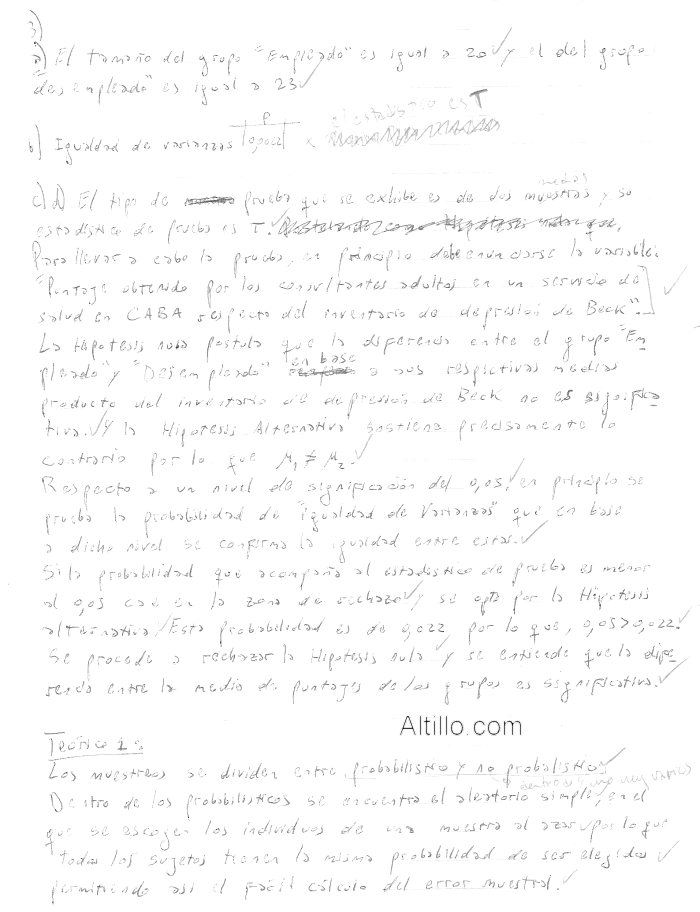 3)
a) El tamaño del grupo "Empleado" es igual a 20 y el del grupo
"desempleado" es igual a 23
P el estadístico es T
b) Igualdad de varianzas x
c) d) El tipo de prueba que se exhibe es de dos medias muestras y su
estadístico de prueba es T.
Para llevar a cabo la prueba, en principio debe enunciarse la variable:
"Puntaje obtenido por los consultantes adultos en un servicio de
salud en CABA respecto del inventario de depresión de Beck".
La Hipotesis nula postula que la diferencia entre el grupo "Em
pleado" y "Desempleado" en base a sus respectivas medias
producto del inventario de depresión de Beck no es significa
tiva. Y la Hipotesis Alternativa sostiene precisamente lo
contrario por lo que μ1 ≠ μ2.
Respecto a un nivel de significación del 0,05, en principio se
prueba la probabilidad de "Igualdad de Varianzas" que en base
a dicho nivel se confirma la igualdad entre estas.
Si la probabilidad que acompaña al estadístico de prueba es menor
al 0,05 cae en la zona de rechazo y se opta por la Hipotesis
alternativa. Esta probabilidad es de 0,022, por lo que, 0,05>0,022.
Se procede a rechazar la Hipotesis nula y se entiende que la dife
rencia entre la media de puntajes de los grupos es significativa.
Altillo.com
Teórico 1:
Los muestreos se dividen entre probabilistico y no probalistico
dentro de
Dentro de los probabilisticos se encuentra el aleatorio simple, en el
que se escogen los individuos de una muestra al azar, por lo que
todos los sujetos tienen la misma probabilidad de ser elegidos
permitiendo asi el facil cálculo del error muestral.